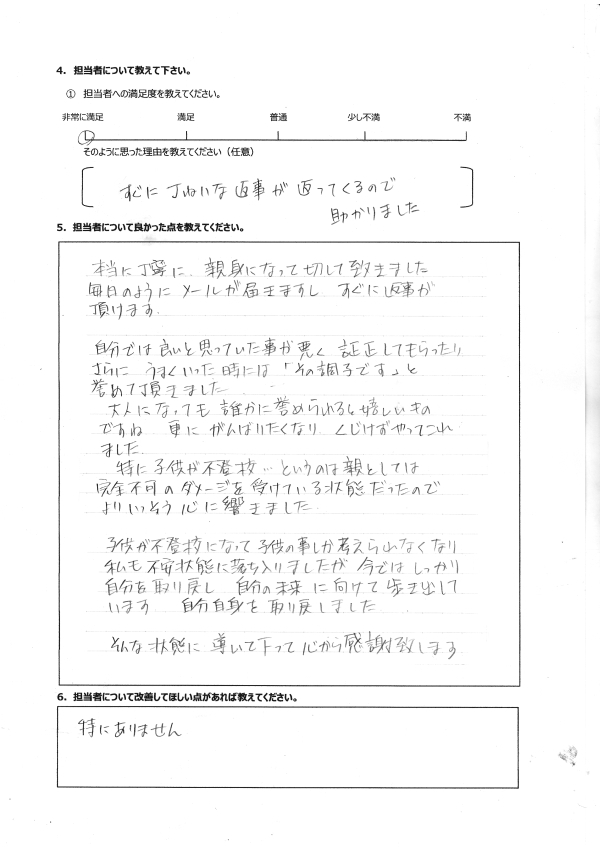 4. 担当者について教えて下さい。
① 担当者への満足度を教えてください。
非常に満足 満足 普通 少し不満 不満
そのように思った理由を教えてください（任意）
すぐに丁ねいな返事が返ってくるので
助かりました
5. 担当者について良かった点を教えてください。
本当に丁寧に、親身になって 致きました
毎日のように メールが届きますし すぐに返事が
頂けます.
自分では良いと思っていた事が悪く 証正してもらったり
さらに うまくいった時には「その調子です」と
誉めて頂きました
大人になっても 誰かに誉められると嬉しいもの
ですね 更に がんばりたくなり くじけずやってこれ
ました.
特に子供が不登校…というのは親としては
完全不可のダメージを受けている状態だったので
よりいっそう心に響きました
子供が不登校になって子供の事しか考えられなくなり
私も不安状態に落ち入りましたが 今では しっかり
自分を取り戻し 自分の未来に向けて歩き出して
います 自分自身を取り戻しました
そんな状態に 導いて下って心から感謝致します
6. 担当者について改善してほしい点があれば教えてください。
特にありません